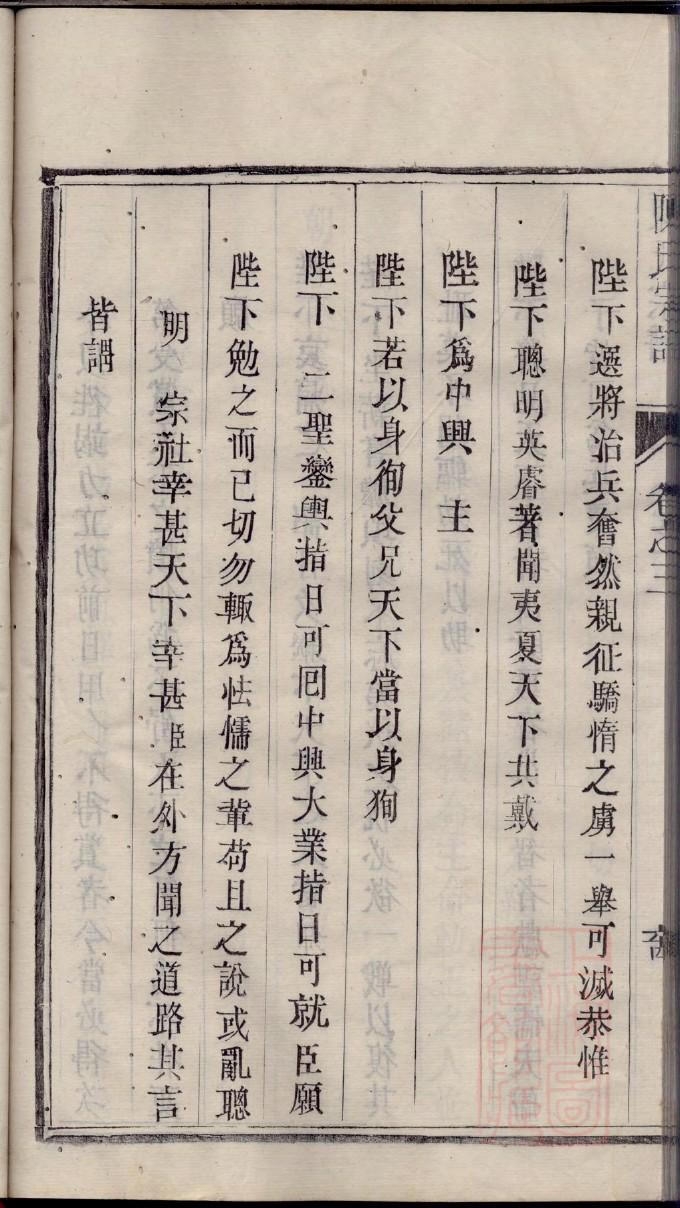 陳氏宗譜 卷之三
陛下選將治兵奮然親征驕惰之虜一舉可滅恭惟
陛下聰明英睿著聞夷夏天下共戴
陛下爲中興 主
陛下若以身徇父兄天下當以身狥
陛下 二聖鑾輿指日可囘中興大業指日可就臣願
陛下勉之而已切勿輙爲怯懦之輩苟且之說或亂聰
明 宗社幸甚天下幸甚臣在外方聞之道路其言
皆謂